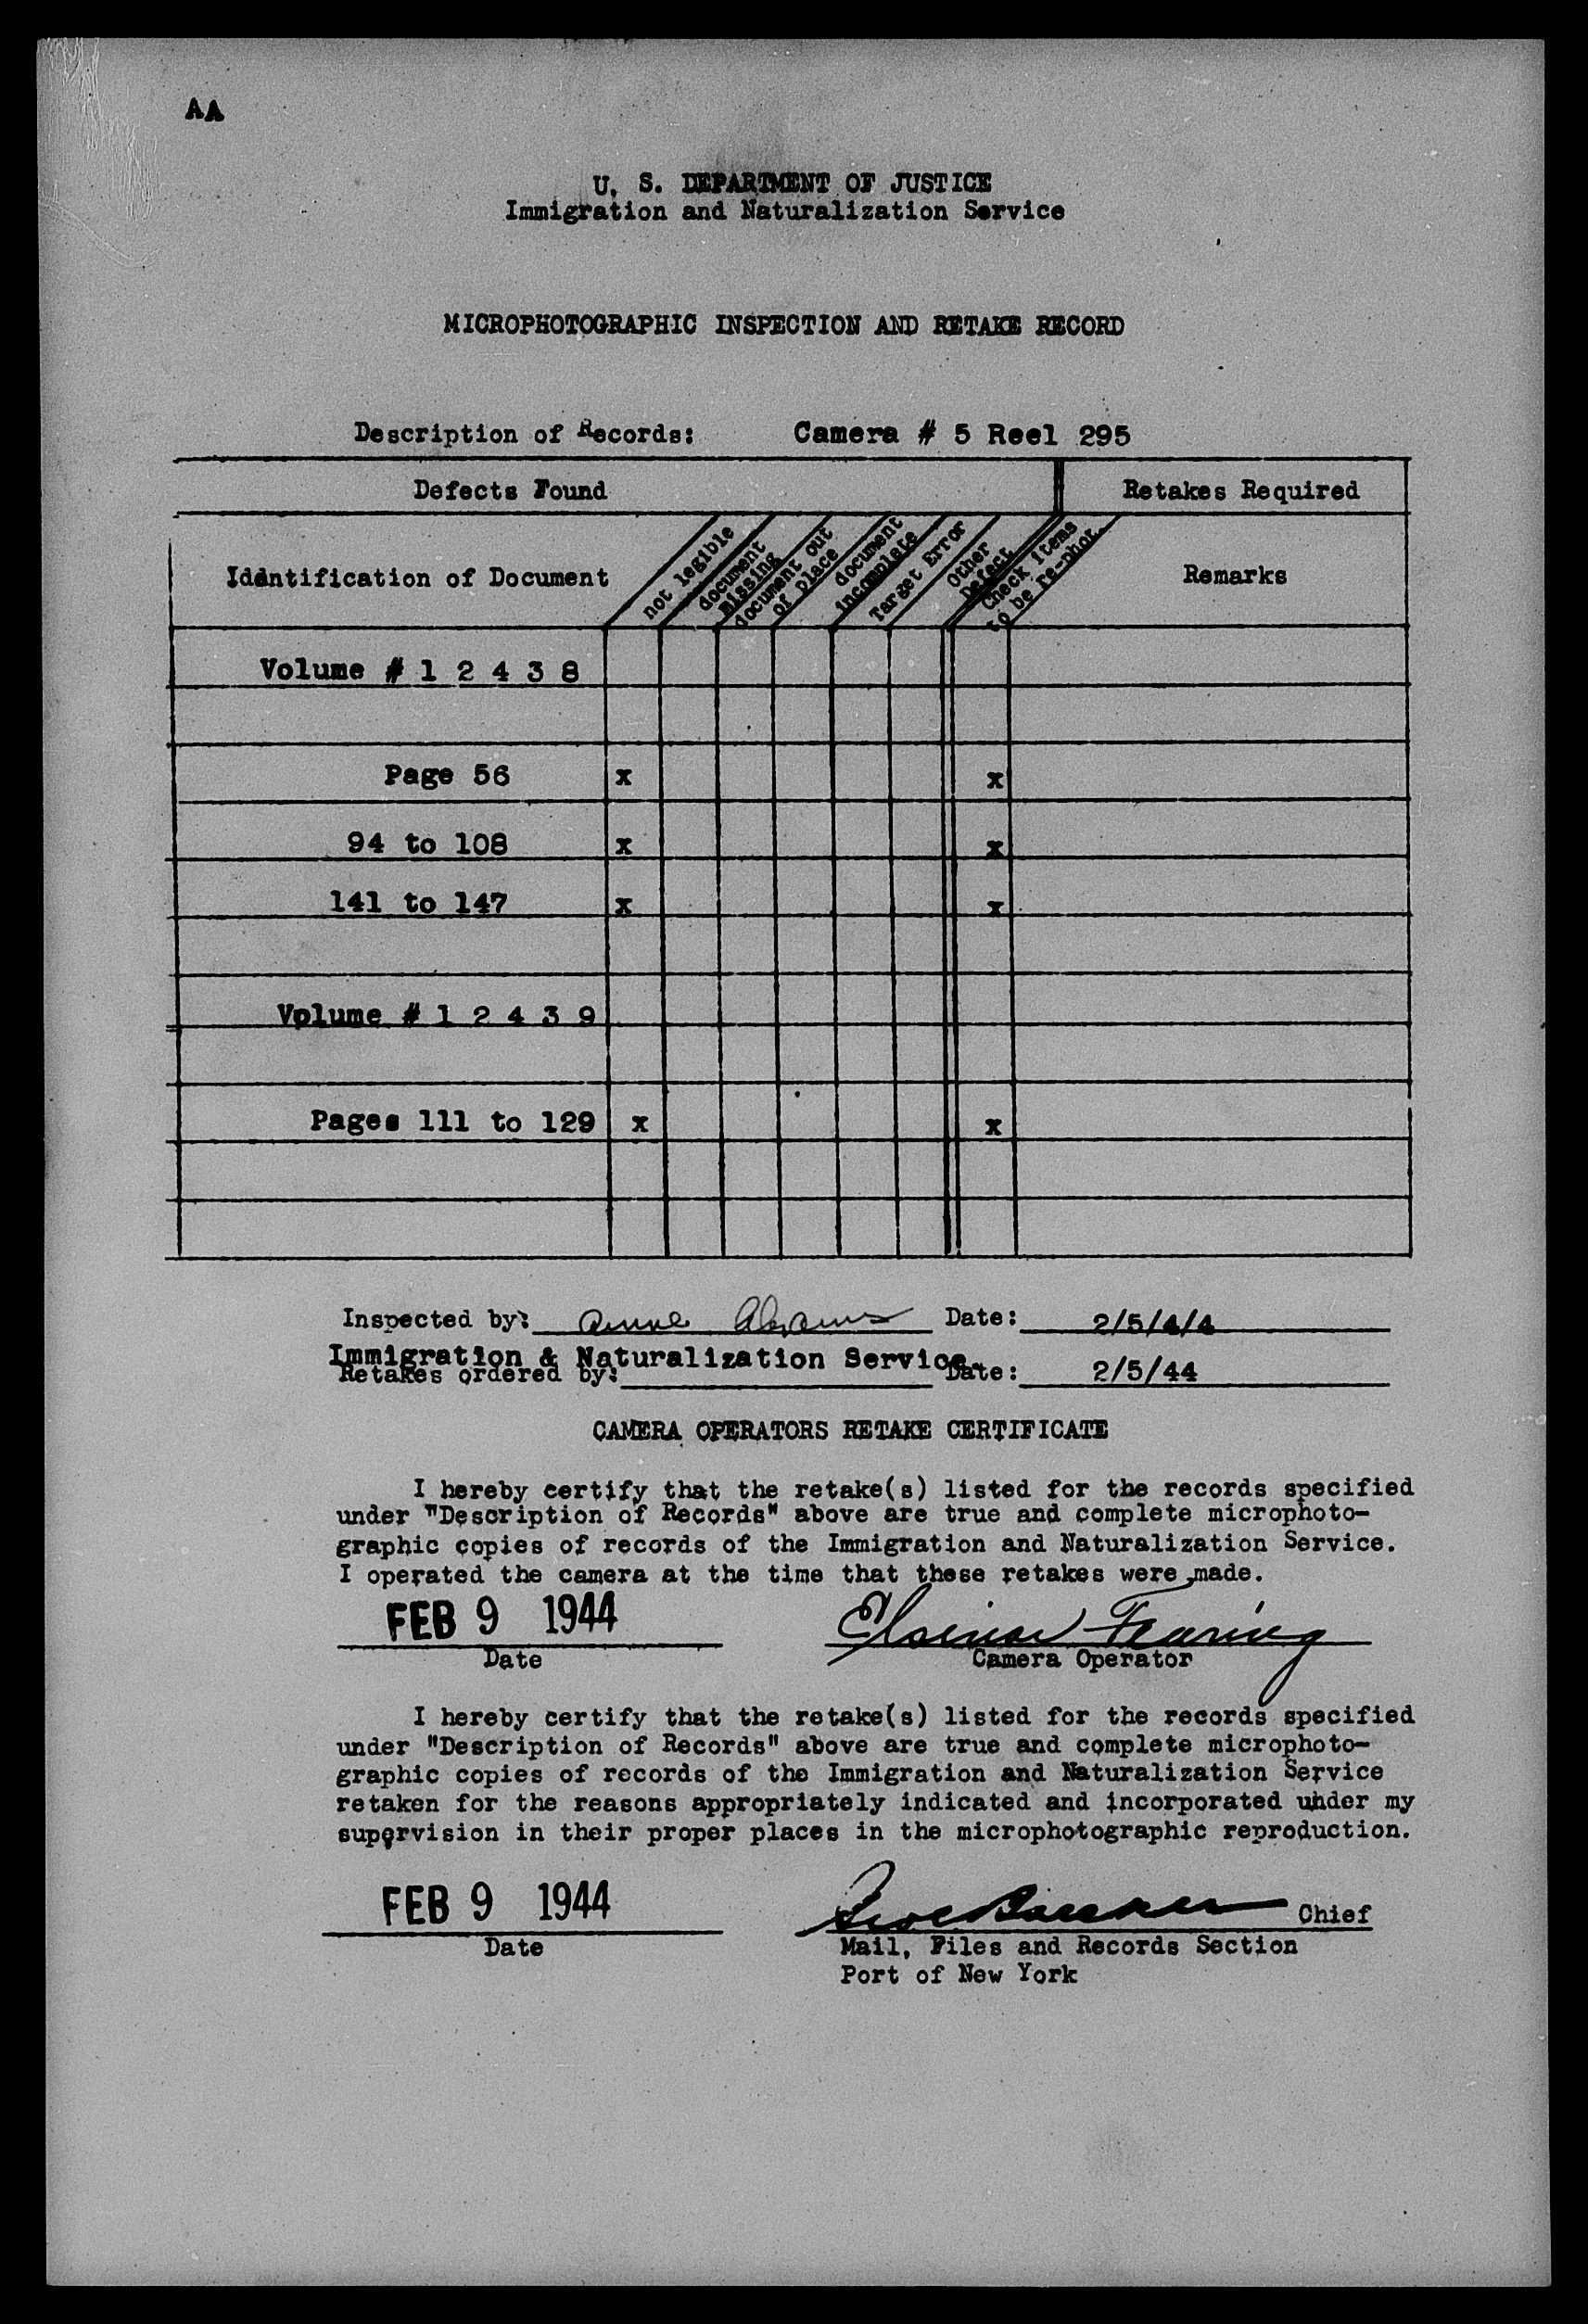 AA
U. S. DEPARTMENT OF JUSTICE
Immigration and Naturalization Service
MICROPHOTOGRAPHIC INSPECTION AND RETAKE RECORD
Description of Records: Camera # 5 Reel 295
Defects Found Retakes Required
Identification of Document
not legible
document missing
document out of place
document incomplete
Target Error
Other Defect
Check items to be re-phot.
Remarks
Volume # 1 2 4 3 8
Page 56 x x
94 to 108 x x
141 to 147 x x
Volume # 1 2 4 3 9
Pages 111 to 129 x x
Inspected by: Anne Abrams Date: 2/5/4/4
Immigration & Naturalization Service.
Retakes ordered by: Date: 2/5/44
CAMERA OPERATORS RETAKE CERTIFICATE
I hereby certify that the retake(s) listed for the records specified
under "Description of Records" above are true and complete microphoto-
graphic copies of records of the Immigration and Naturalization Service.
I operated the camera at the time that these retakes were made.
FEB 9 1944 Fearing
Date Camera Operator
I hereby certify that the retake(s) listed for the records specified
under "Description of Records" above are true and complete microphoto-
graphic copies of records of the Immigration and Naturalization Service
retaken for the reasons appropriately indicated and incorporated under my
supervision in their proper places in the microphotographic reproduction.
FEB 9 1944 Chief
Date Mail, Files and Records Section
Port of New York